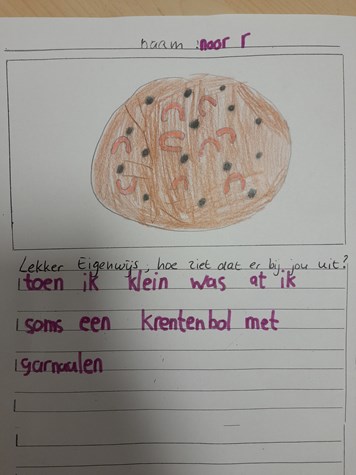 naam : noor r
Lekker Eigenwijs, hoe ziet dat er bij jou uit?
toen ik klein was at ik
soms een krentenbol met
garnaulen